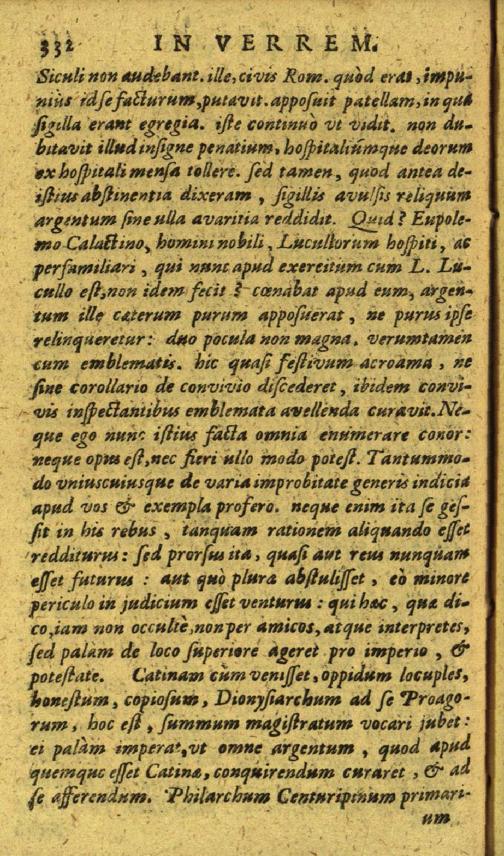 332 IN VERREM.
Siculi non audebant. ille, civis Rom. quòd erat, impu-
niùs id se facturum, putavit. apposuit patellam, in qua
sigilla erant egregia. iste continuò vt vidit. non du-
bitavit illud insigne penatium, hospitaliúmque deorum
ex hospitali mensa tollere. sed tamen, quod antea de-
istius abstinentia dixeram, sigillis avulsis reliquum
argentum sine ulla avaritia reddidit. Quid? Eupole-
mo Calactino, homini nobili, Lucullorum hospiti, ac
perfamiliari, qui nunc apud exereitum cum L. Lu-
cullo est, non idem fecit? cœnabat apud eum, argen-
tum ille cæterum purum apposuerat, ne purus ipse
relinqueretur: duo pocula non magna. verumtamen
cum emblematis. hic quasi festivum acroama, ne
sine corollario de convivio discederet, ibidem convi-
vis inspectantibus emblemata avellenda curavit. Ne-
que ego nunc istius facta omnia enumerare conor:
neque opus est, nec fieri ullo modo potest. Tantummo-
do vniuscuiusque de varia improbitate generis indicia
apud vos & exempla profero. neque enim ita se ges-
sit in his rebus, tanquam rationem aliquando esset
redditurus: sed prorsus ita, quasi aut reus nunquam
esset futurus: aut quò plura abstulisset, eò minore
periculo in judicium esset venturus: qui hæc, quæ di-
co, iam non occultè, non per amicos, atque interpretes,
sed palàm de loco superiore ageret pro imperio, &
potestate. Catinam cùm venisset, oppidum locuples,
honestum, copiosum, Dionysiarchum ad se Proago-
rum, hoc est, summum magistratum vocari jubet:
ei palàm imperat, vt omne argentum, quod apud
quemque esset Catinæ, conquirendum curaret, & ad
se afferendum. Philarchum Centuripinum primari-
um